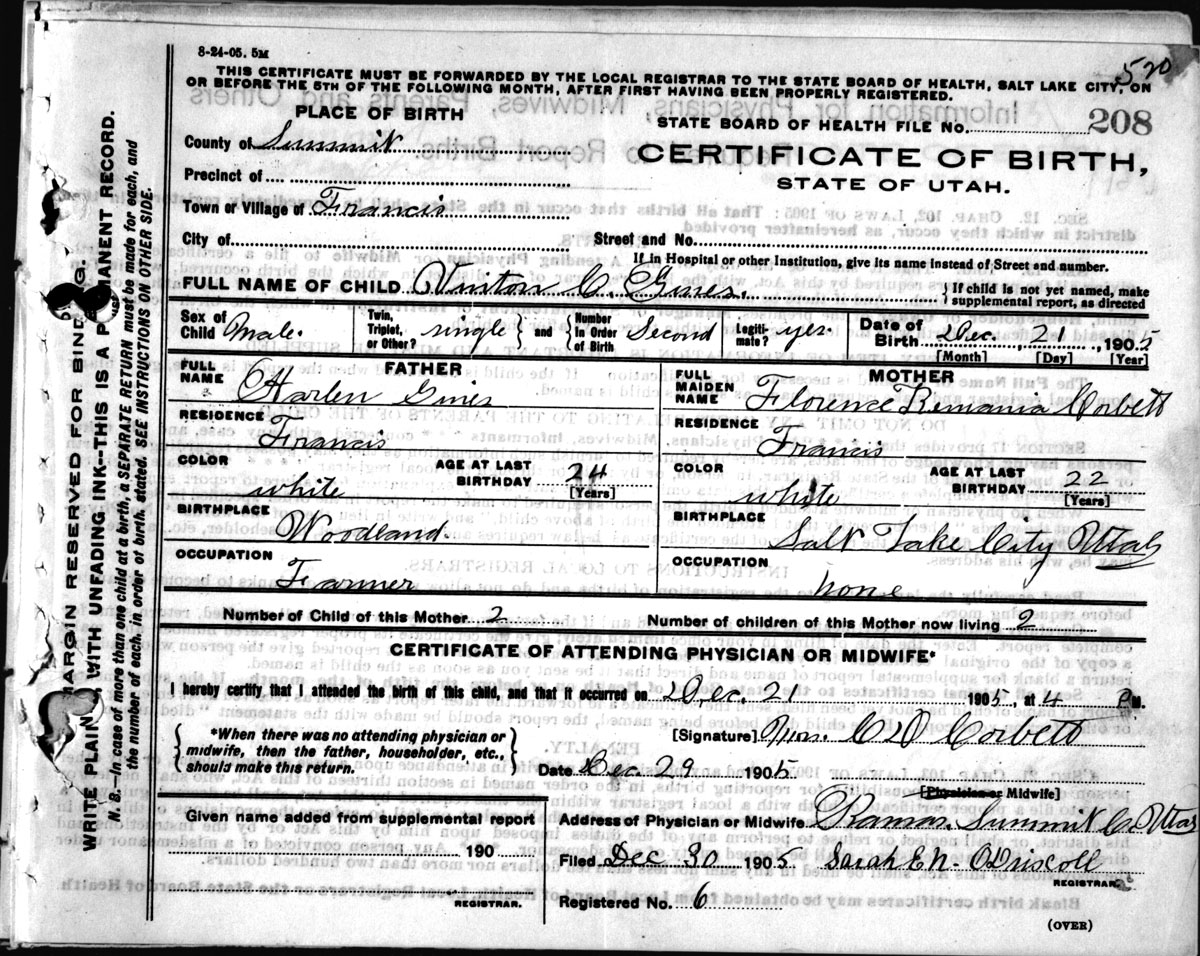 8-24-05. 5M
520
THIS CERTIFICATE MUST BE FORWARDED BY THE LOCAL REGISTRAR TO THE STATE BOARD OF HEALTH, SALT LAKE CITY, ON
OR BEFORE THE 5TH OF THE FOLLOWING MONTH, AFTER FIRST HAVING BEEN PROPERLY REGISTERED.
PLACE OF BIRTH
STATE BOARD OF HEALTH FILE NO. 208
County of Summit
CERTIFICATE OF BIRTH,
Precinct of
STATE OF UTAH.
Town or Village of Francis
City of
Street and No.
If in Hospital or other Institution, give its name instead of Street and number.
FULL NAME OF CHILD Vinton C. Gines. { If child is not yet named, make
supplemental report, as directed
Sex of Child Male. Twin, Triplet, or Other? single } and { Number in Order of Birth Second Legitimate? yes. Date of Birth Dec. 21, 1905
[Month] [Day] [Year]
FATHER
MOTHER
FULL NAME Harlen Gines
FULL MAIDEN NAME Florence Corbett
RESIDENCE Francis
RESIDENCE Francis
COLOR white AGE AT LAST BIRTHDAY 24 [Years]
COLOR white AGE AT LAST BIRTHDAY 22 [Years]
BIRTHPLACE Woodland.
BIRTHPLACE Salt Lake City Utah
OCCUPATION Farmer
OCCUPATION none
Number of Child of this Mother 2
Number of children of this Mother now living 2
CERTIFICATE OF ATTENDING PHYSICIAN OR MIDWIFE*
I hereby certify that I attended the birth of this child, and that it occurred on Dec. 21 1905, at 4 P M.
{ *When there was no attending physician or
midwife, then the father, householder, etc.,
should make this return. }
[Signature] Mrs. C D Corbett
Date Dec. 29 1905
[Physician or Midwife]
Given name added from supplemental report
190
REGISTRAR.
Address of Physician or Midwife Kamas. Summit Co. Utah
Filed Dec 30 1905 Sarah E N. O'Driscoll
REGISTRAR
Registered No. 6
(OVER)
MARGIN RESERVED FOR BINDING.
WRITE PLAINLY, WITH UNFADING INK---THIS IS A PERMANENT RECORD.
N. B.--In case of more than one child at a birth, a SEPARATE RETURN must be made for each, and
the number of each, in order of birth, stated. SEE INSTRUCTIONS ON OTHER SIDE.